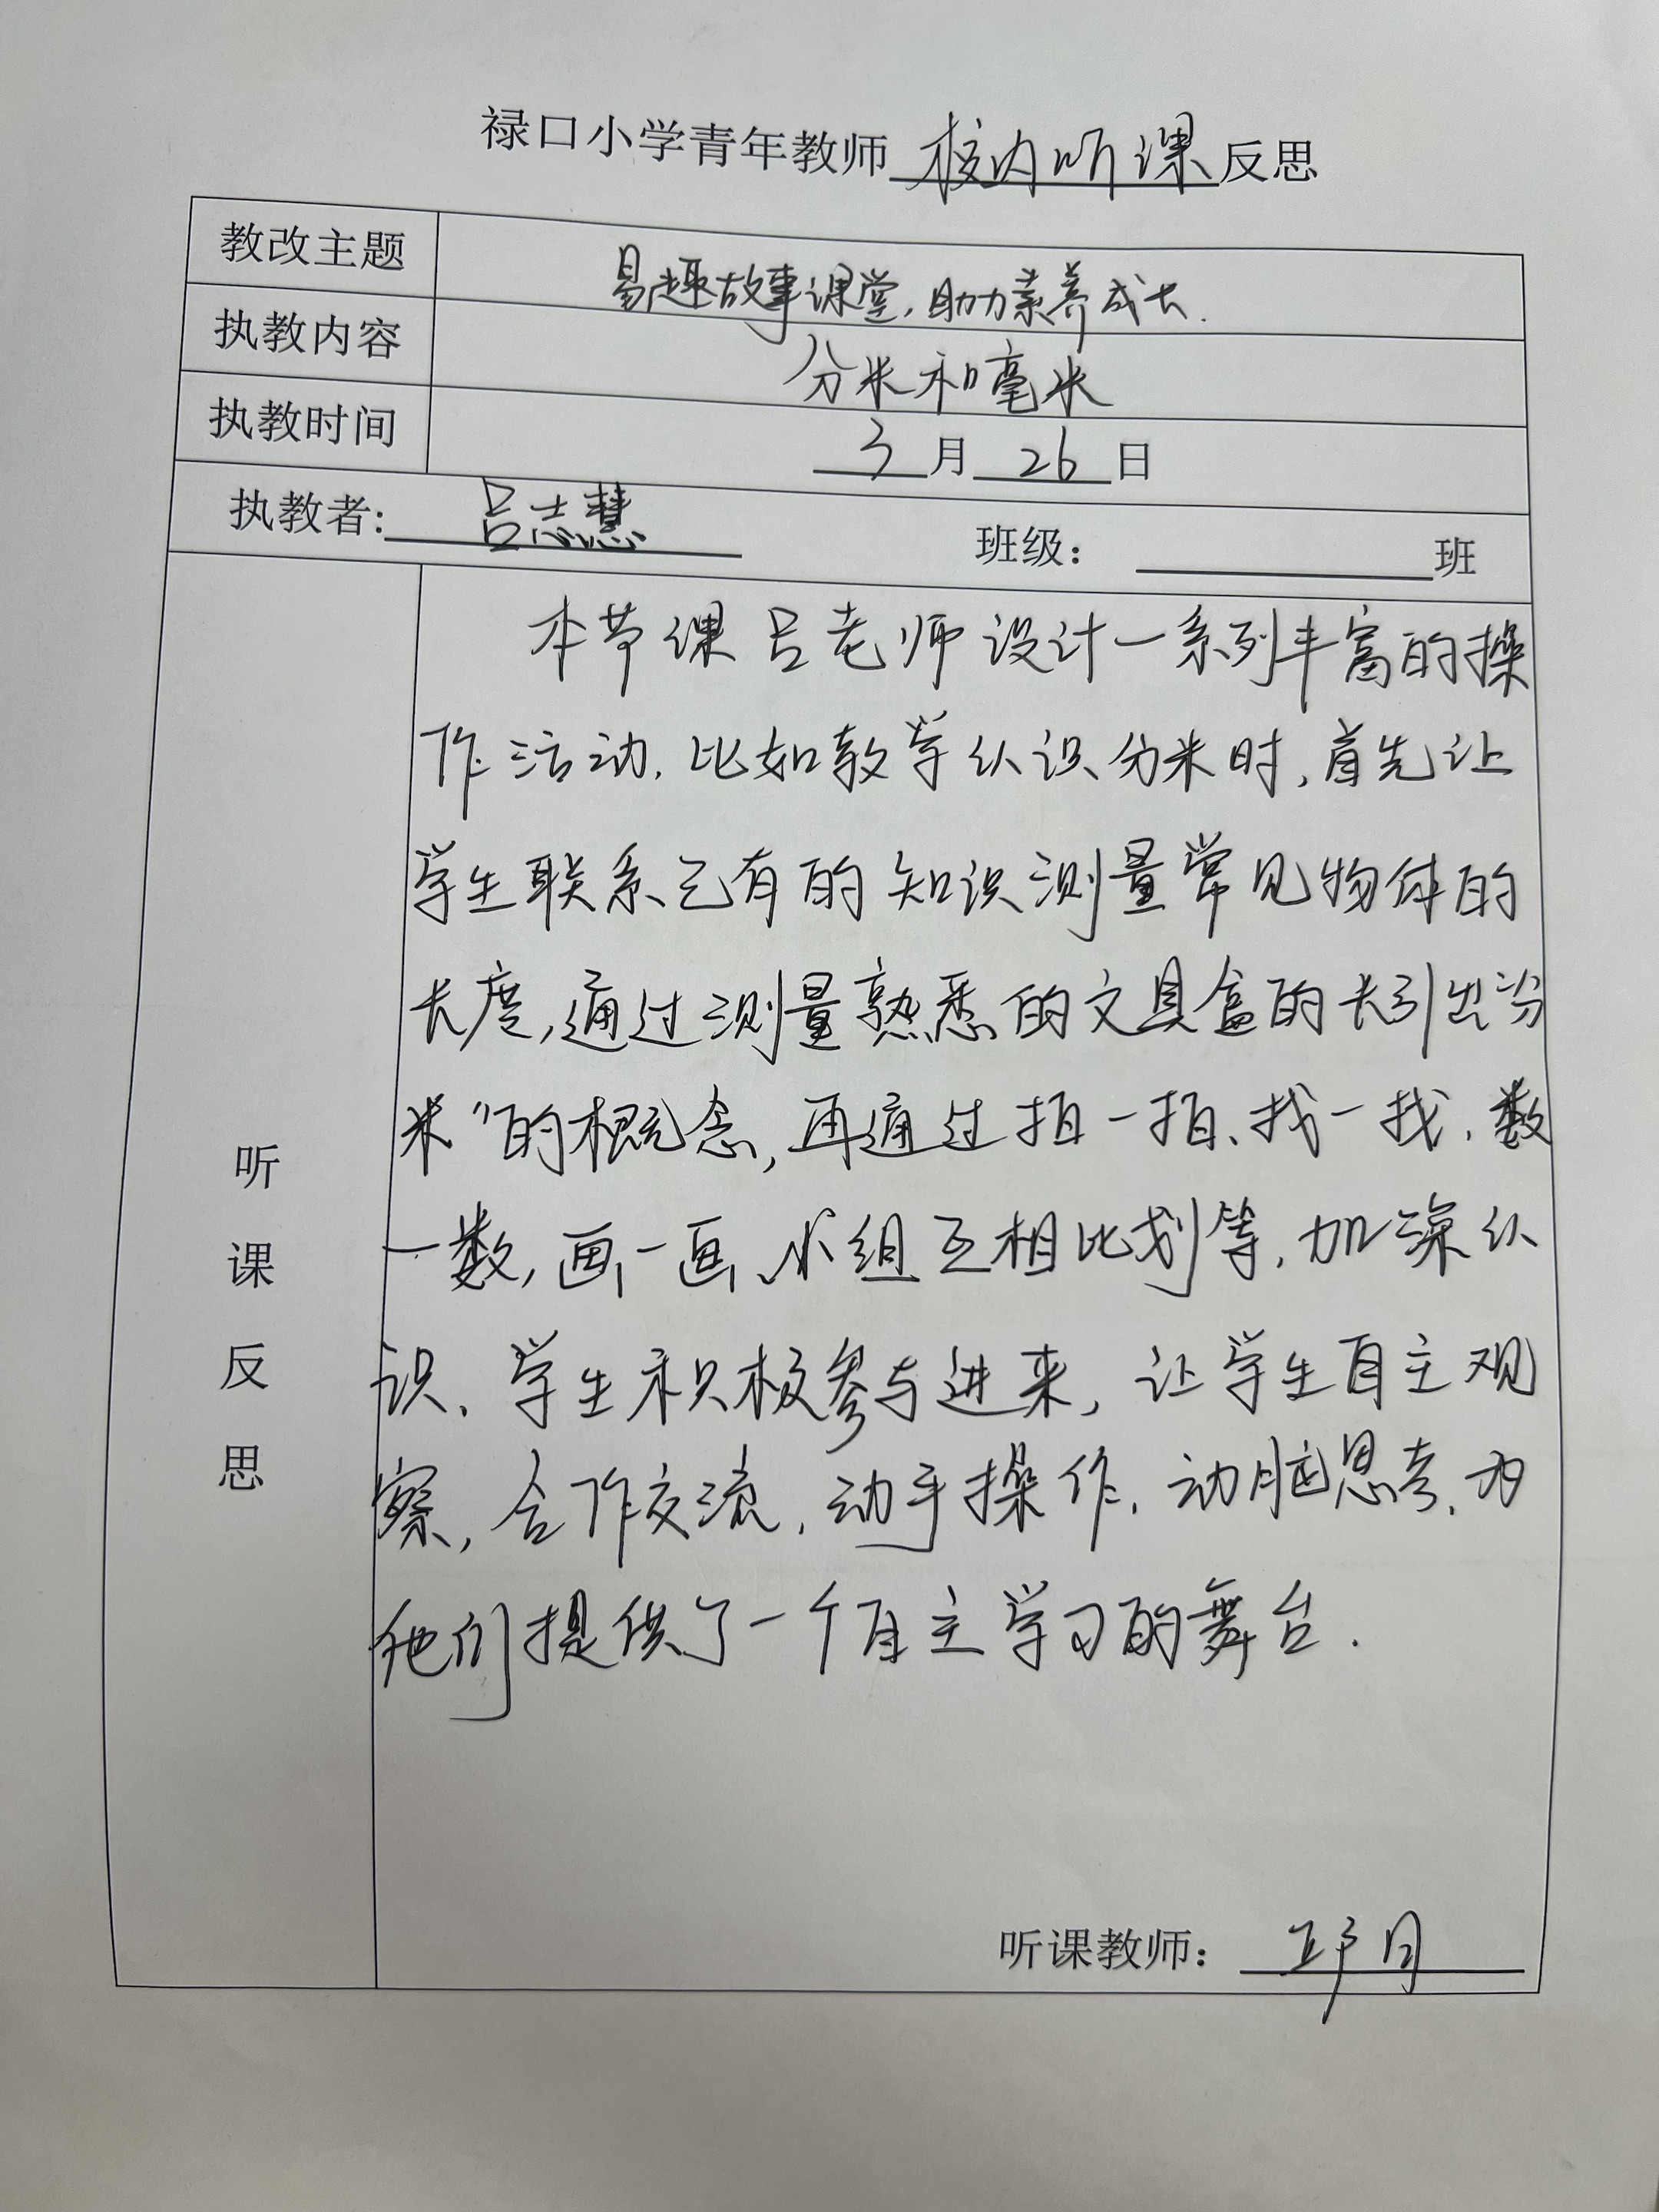 禄口小学青年教师校内听课反思
教改主题 易趣故事课堂,助力素养成长.
执教内容 分米和毫米
执教时间 3月26日
执教者:吕志慧 班级: 班
听课反思
本节课吕老师设计一系列丰富的操
作活动.比如教学认识分米时,首先让
学生联系已有的知识测量常见物体的
长度,通过测量熟悉的文具盒的长引出“分
米”的概念,再通过掐一掐、找一找、数
一数,画一画、小组互相比划等,加深认
识、学生积极参与进来,让学生自主观
察,合作交流,动手操作,动脑思考,为
他们提供了一个自主学习的舞台.
听课教师: